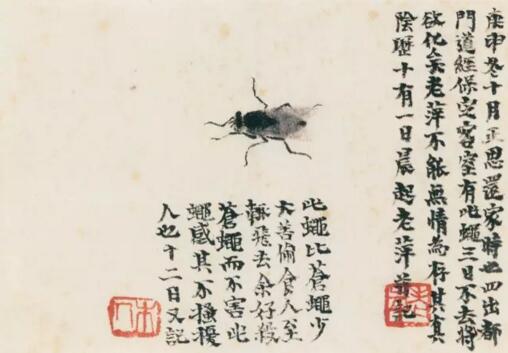 庚申冬十月正思還家時也四出都
門道經保定客室有此蠅三日不去將
欲化矣老萍不能無情為存其真
陰歷十有一日晨起老萍並記
此蠅比蒼蠅少
大善偷食人至
輒飛去余好殺
蒼蠅而不害此
蠅感其不搔擾
人也十二日又記
木人